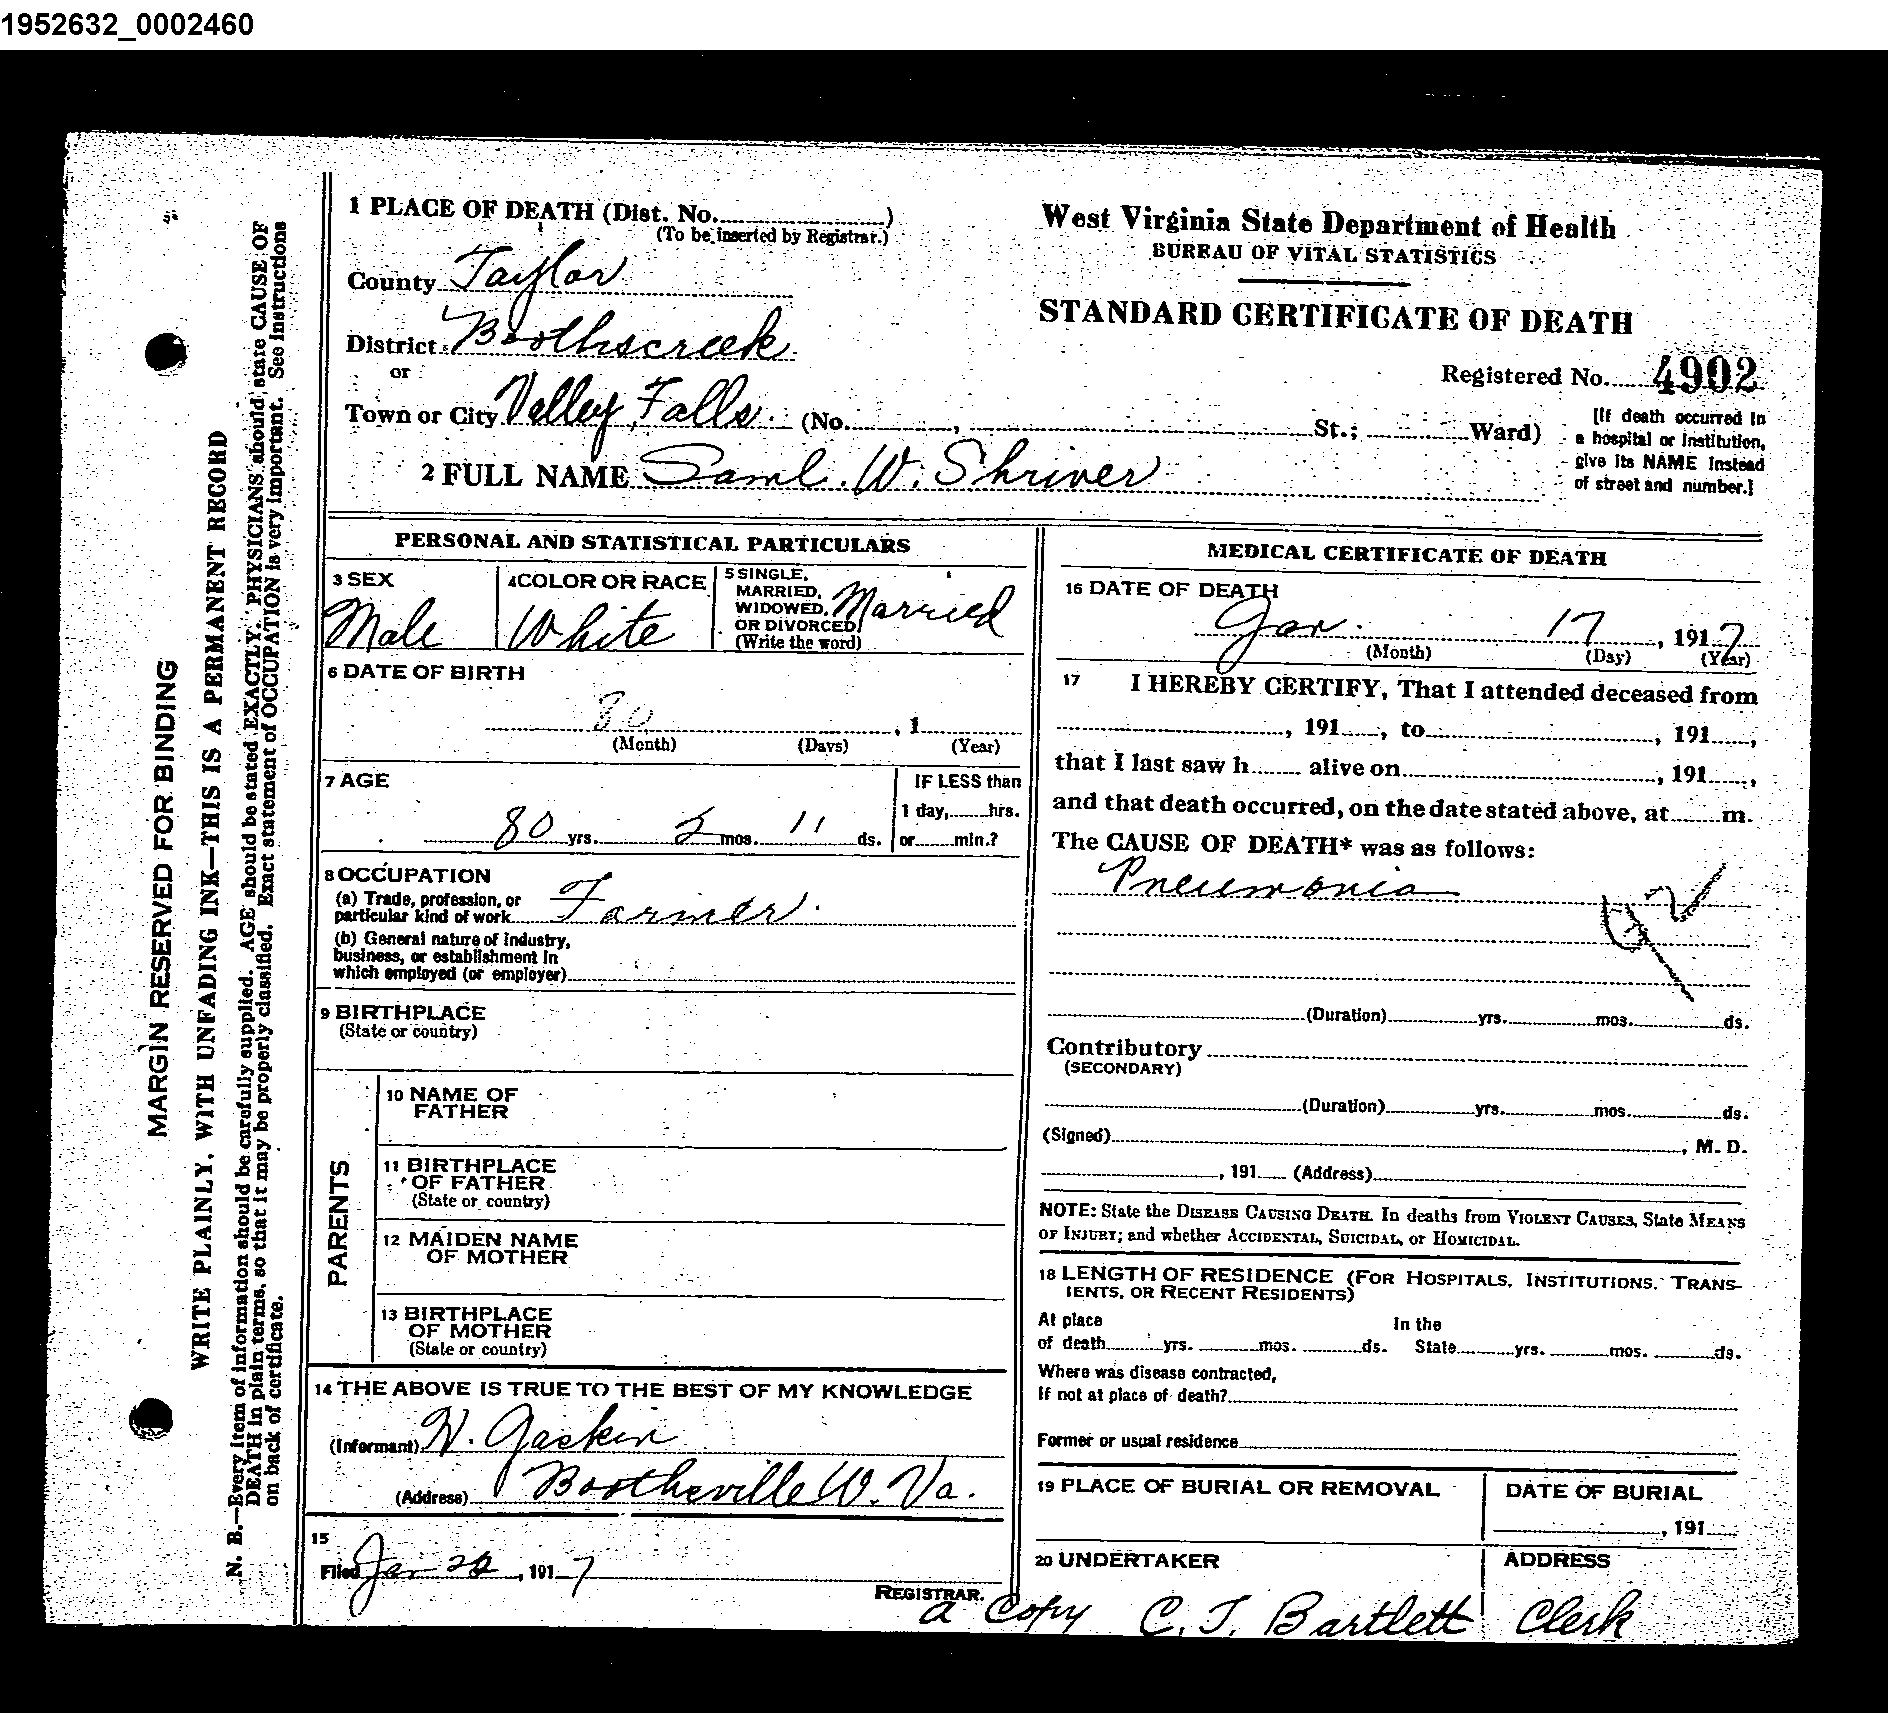 1952632_0002460
MARGIN RESERVED FOR BINDING
WRITE PLAINLY, WITH UNFADING INK—THIS IS A PERMANENT RECORD
N. B.—Every item of information should be carefully supplied. AGE should be stated EXACTLY. PHYSICIANS should state CAUSE OF
DEATH in plain terms, so that it may be properly classified. Exact statement of OCCUPATION is very important. See instructions
on back of certificate.
1 PLACE OF DEATH (Dist. No. )
(To be inserted by Registrar.)
County Taylor
District Boothscreek
or
Town or City Valley Falls (No. , St.; Ward)
2 FULL NAME Saml. W. Shriver
West Virginia State Department of Health
BUREAU OF VITAL STATISTICS
STANDARD CERTIFICATE OF DEATH
Registered No. 4902
[If death occurred in
a hospital or institution,
give its NAME instead
of street and number.]
PERSONAL AND STATISTICAL PARTICULARS
3 SEX
Male
4 COLOR OR RACE
White
5 SINGLE,
MARRIED,
WIDOWED,
OR DIVORCED
(Write the word)
Married
6 DATE OF BIRTH
80 , 1
(Month) (Days) (Year)
7 AGE
80 yrs. 2 mos. 11 ds.
IF LESS than
1 day, hrs.
or min.?
8 OCCUPATION
(a) Trade, profession, or
particular kind of work Farmer.
(b) General nature of industry,
business, or establishment in
which employed (or employer)
9 BIRTHPLACE
(State or country)
PARENTS
10 NAME OF
FATHER
11 BIRTHPLACE
OF FATHER
(State or country)
12 MAIDEN NAME
OF MOTHER
13 BIRTHPLACE
OF MOTHER
(State or country)
14 THE ABOVE IS TRUE TO THE BEST OF MY KNOWLEDGE
(Informant) W. Gaskin
(Address) Boothsville W. Va.
15
Filed Jan 22, 1917
REGISTRAR.
MEDICAL CERTIFICATE OF DEATH
16 DATE OF DEATH
Jan. 17, 1917
(Month) (Day) (Year)
17 I HEREBY CERTIFY, That I attended deceased from
, 191 , to , 191 ,
that I last saw h alive on , 191 ,
and that death occurred, on the date stated above, at m.
The CAUSE OF DEATH* was as follows:
Pneumonia
92
(Duration) yrs. mos. ds.
Contributory
(SECONDARY)
(Duration) yrs. mos. ds.
(Signed) , M. D.
, 191 (Address)
NOTE: State the DISEASE CAUSING DEATH. In deaths from VIOLENT CAUSES, State MEANS
OF INJURY; and whether ACCIDENTAL, SUICIDAL, or HOMICIDAL.
18 LENGTH OF RESIDENCE (FOR HOSPITALS, INSTITUTIONS, TRANS-
IENTS, OR RECENT RESIDENTS)
At place In the
of death yrs. mos. ds. State yrs. mos. ds.
Where was disease contracted,
If not at place of death?
Former or usual residence
19 PLACE OF BURIAL OR REMOVAL
DATE OF BURIAL
, 191
20 UNDERTAKER
ADDRESS
a Copy C. T. Bartlett Clerk